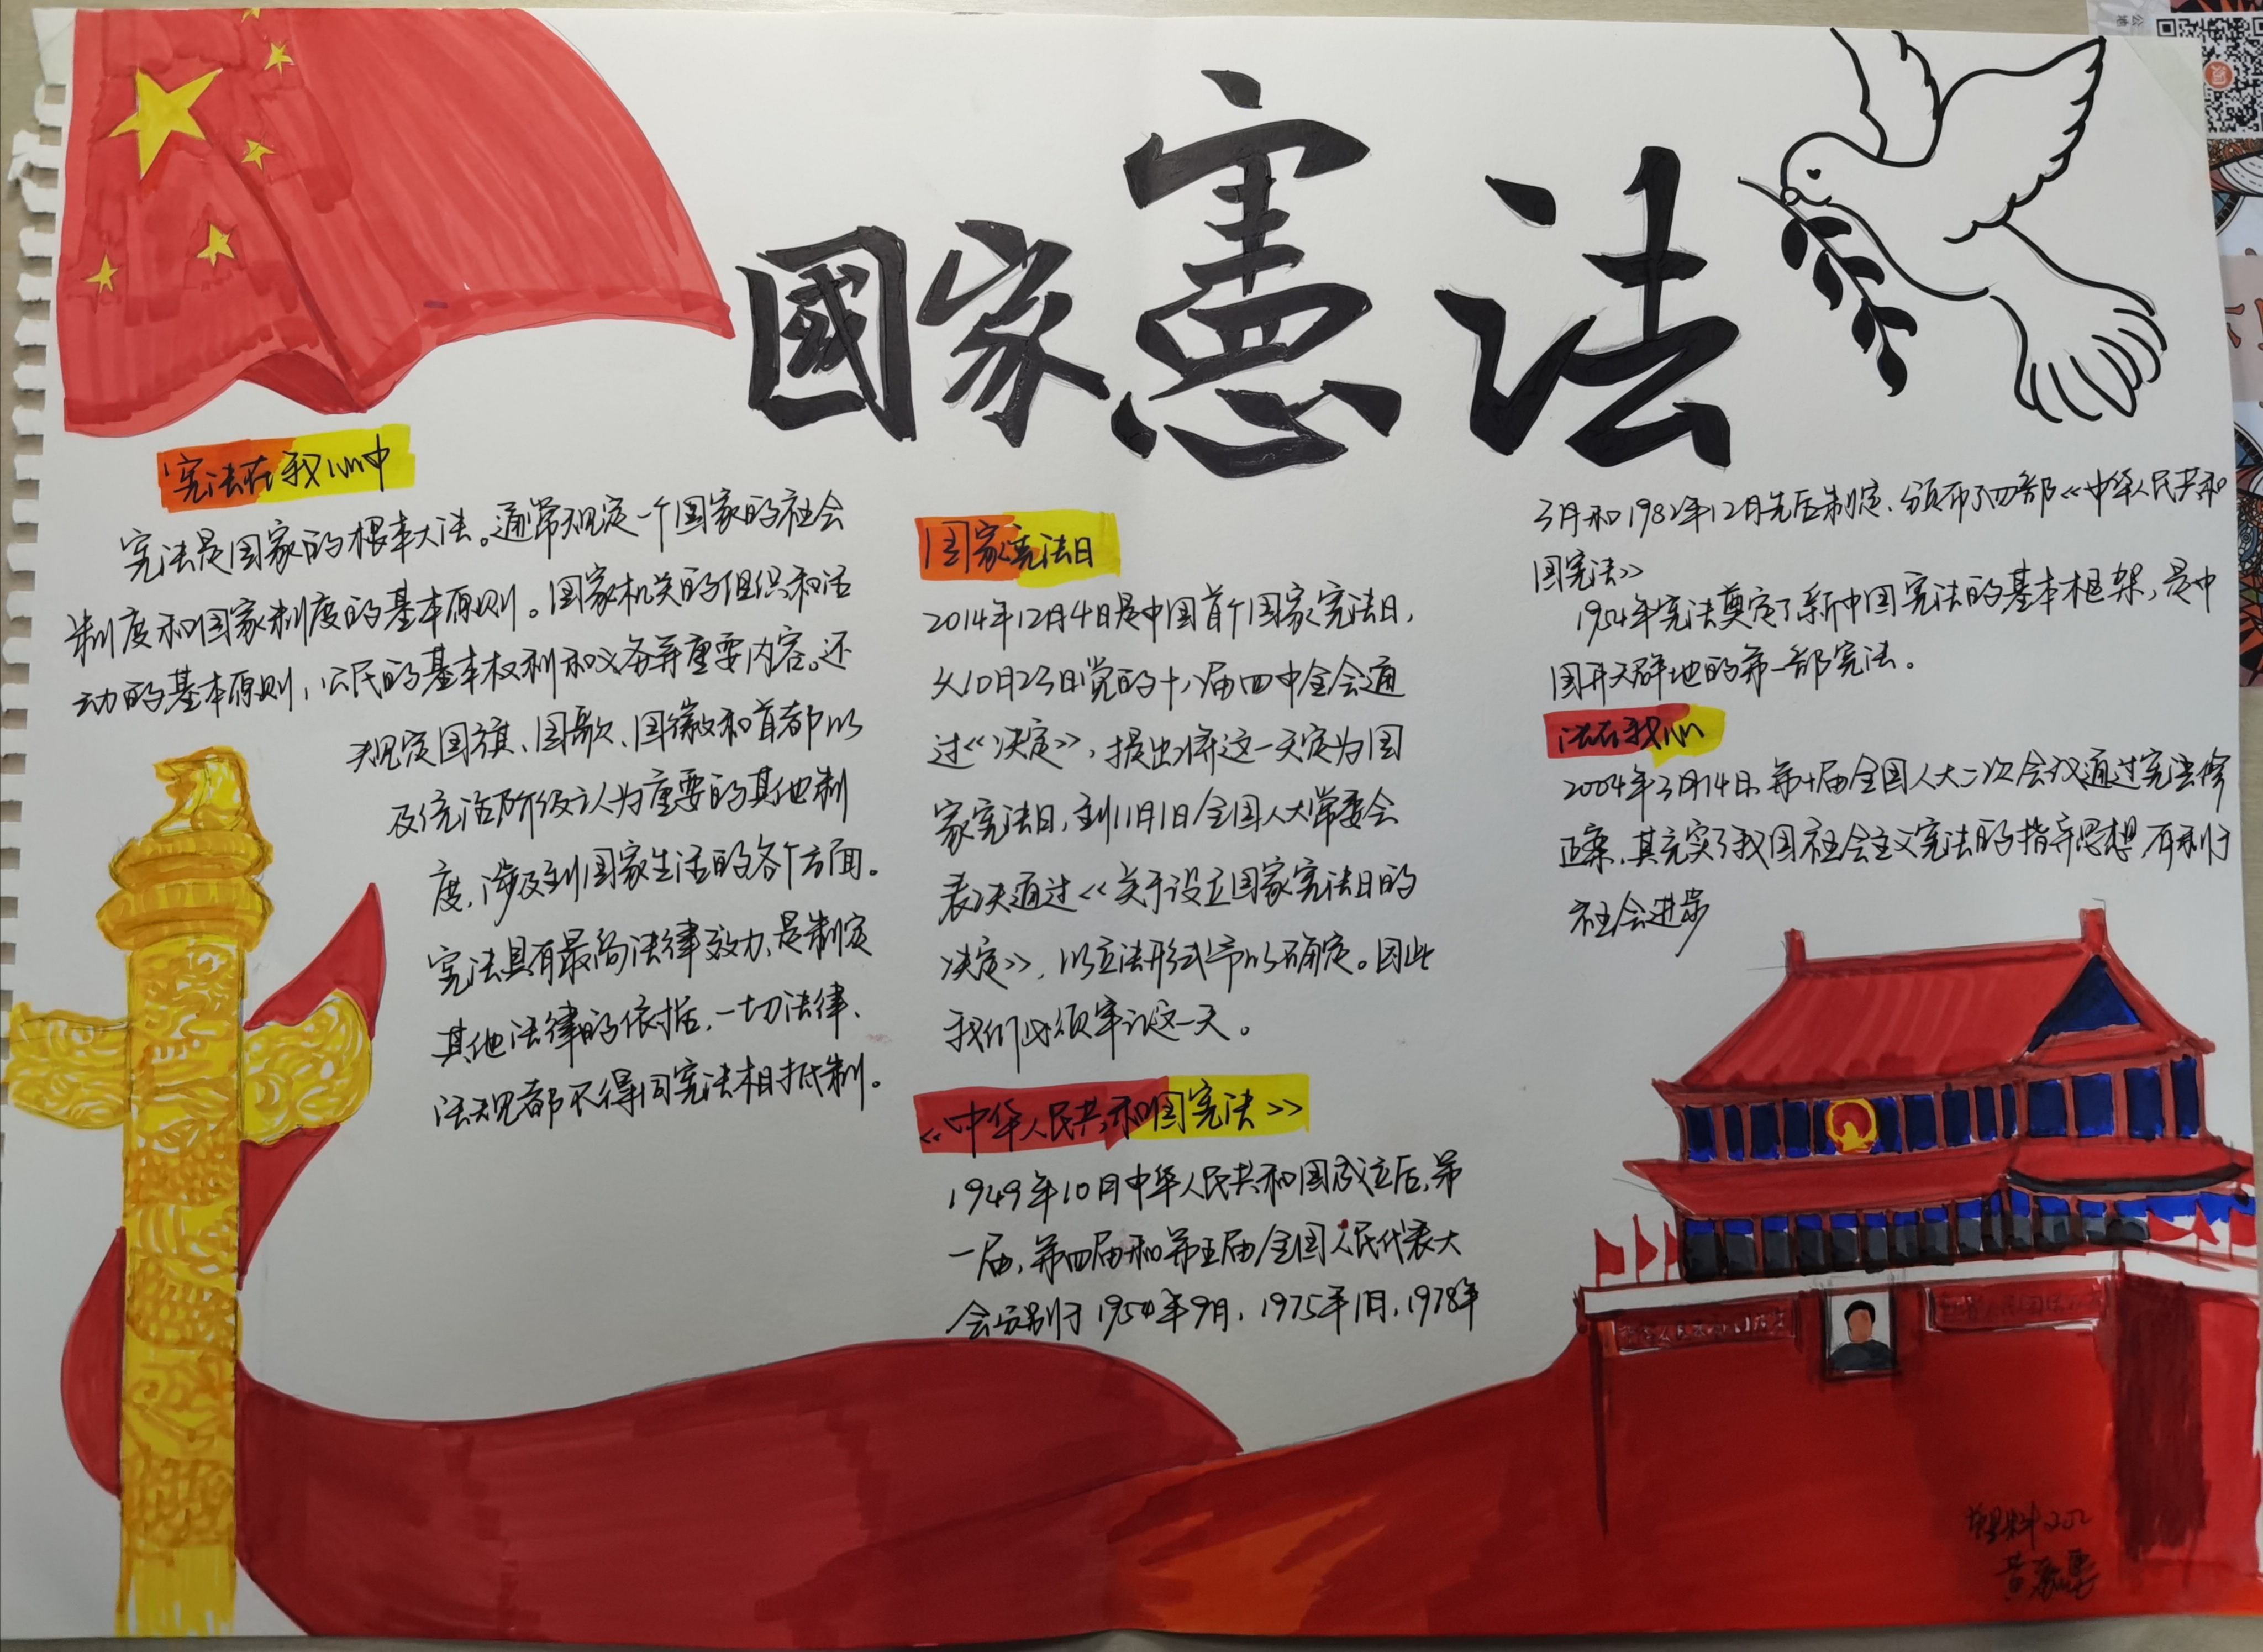 國家憲法
宪法在我心中
宪法是国家的根本大法。通常规定一个国家的社会
制度和国家制度的基本原则。国家机关的组织和活
动的基本原则，公民的基本权利和义务等重要内容。还
规定国旗、国歌、国徽和首都以
及统治阶级认为重要的其他制
度，涉及到国家生活的各个方面。
宪法具有最高法律效力，是制定
其他法律的依据，一切法律、
法规都不得同宪法相抵制。
国家宪法日
2014年12月4日是中国首个国家宪法日，
从10月23日党的十八届四中全会通
过《决定》，提出将这一天定为国
家宪法日，到11月1日全国人大常委会
表决通过《关于设立国家宪法日的
决定》，以立法形式予以确定。因此
我们必须牢记这一天。
《中华人民共和国宪法》
1949年10月中华人民共和国成立后，第
一届，第四届和第五届全国人民代表大
会分别于1954年9月，1975年1月，1978年
3月和1982年12月先后制定、颁布了四部《中华人民共和
国宪法》
1954年宪法奠定了新中国宪法的基本框架，是中
国开天辟地的第一部宪法。
法在我心
2004年3月14日，第十届全国人大二次会议通过宪法修
正案，其充实了我国社会主义宪法的指导思想，有利于
社会进步